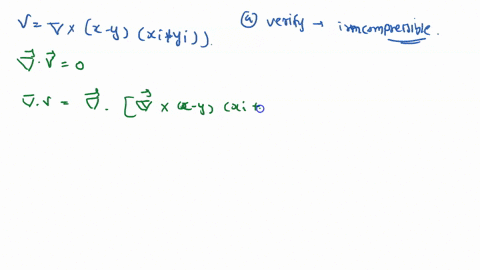 V = ∇ × (x-y) (xi+yi)).
ⓐ verify → incompressible.
∇⃗ · V⃗ = 0
∇⃗.v = ∇⃗ . [∇⃗ × (x-y) (xi +